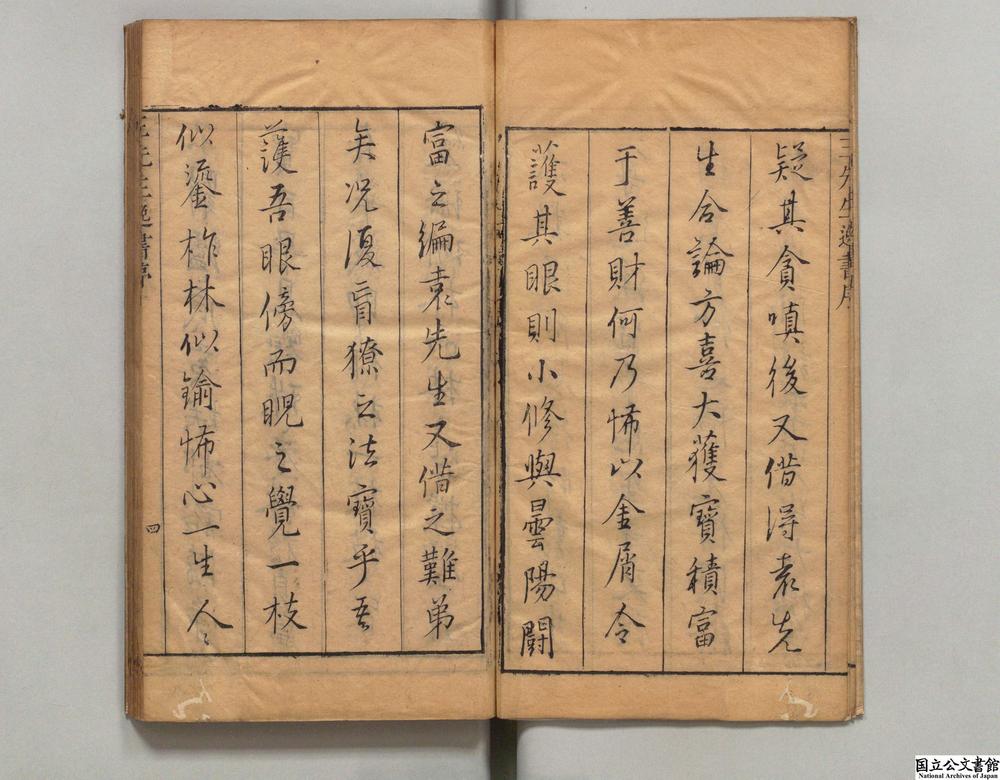 疑其貪嗔後又借淂袁先
生合論方喜大獲寶積富
于善財何乃怖以金屑令
護其眼則小修與曇陽鬪
富之編袁先生又借之難弟
矣况復肓獠之法寶乎吾
護吾眼傍而睨之覺一枝
似鎏柞林似鍮怖心一生人〻
四
国立公文書館
National Archives of Japan